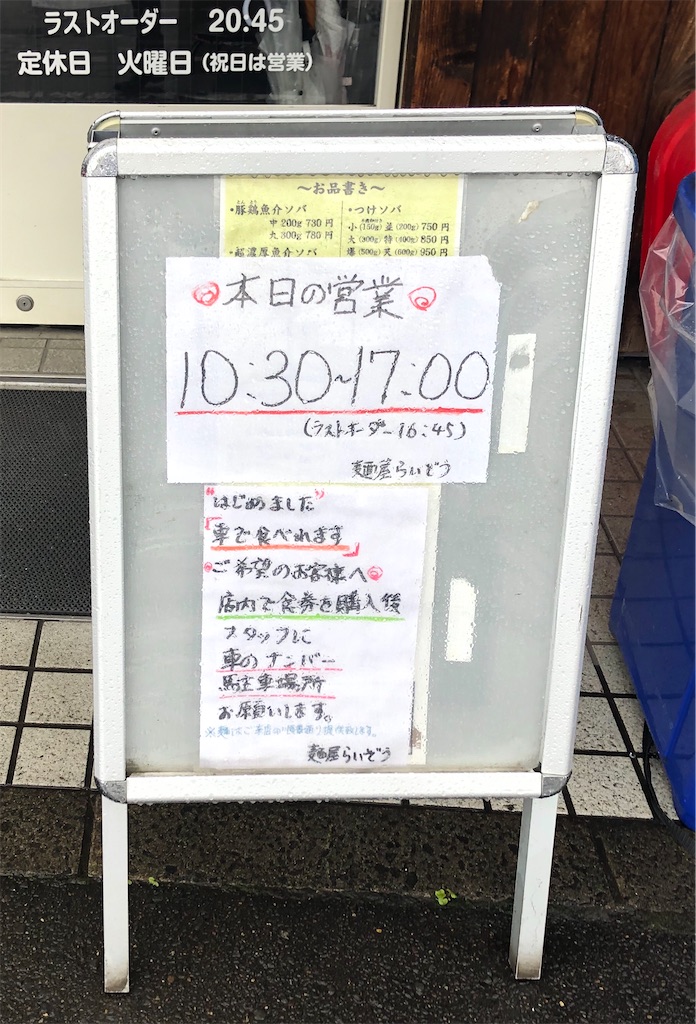 ラストオーダー 20.45
定休日 火曜日(祝日は営業)
~お品書き~
・豚鶏魚介ソバ
中 200g 730円
丸 300g 780円
・超濃厚魚介ソバ
・つけソバ
小(150g) 並(200g) 750円
大(300g) 特(400g) 850円
爆(500g) 笑(600g) 950円
本日の営業
10:30~17:00
(ラストオーダー16:45)
麺屋らいぞう
"はじめました"
「車で食べれます」
ご希望のお客様へ
店内で食券を購入後
スタッフに
車のナンバー
駐車場所
お願いします。
麺屋らいぞう